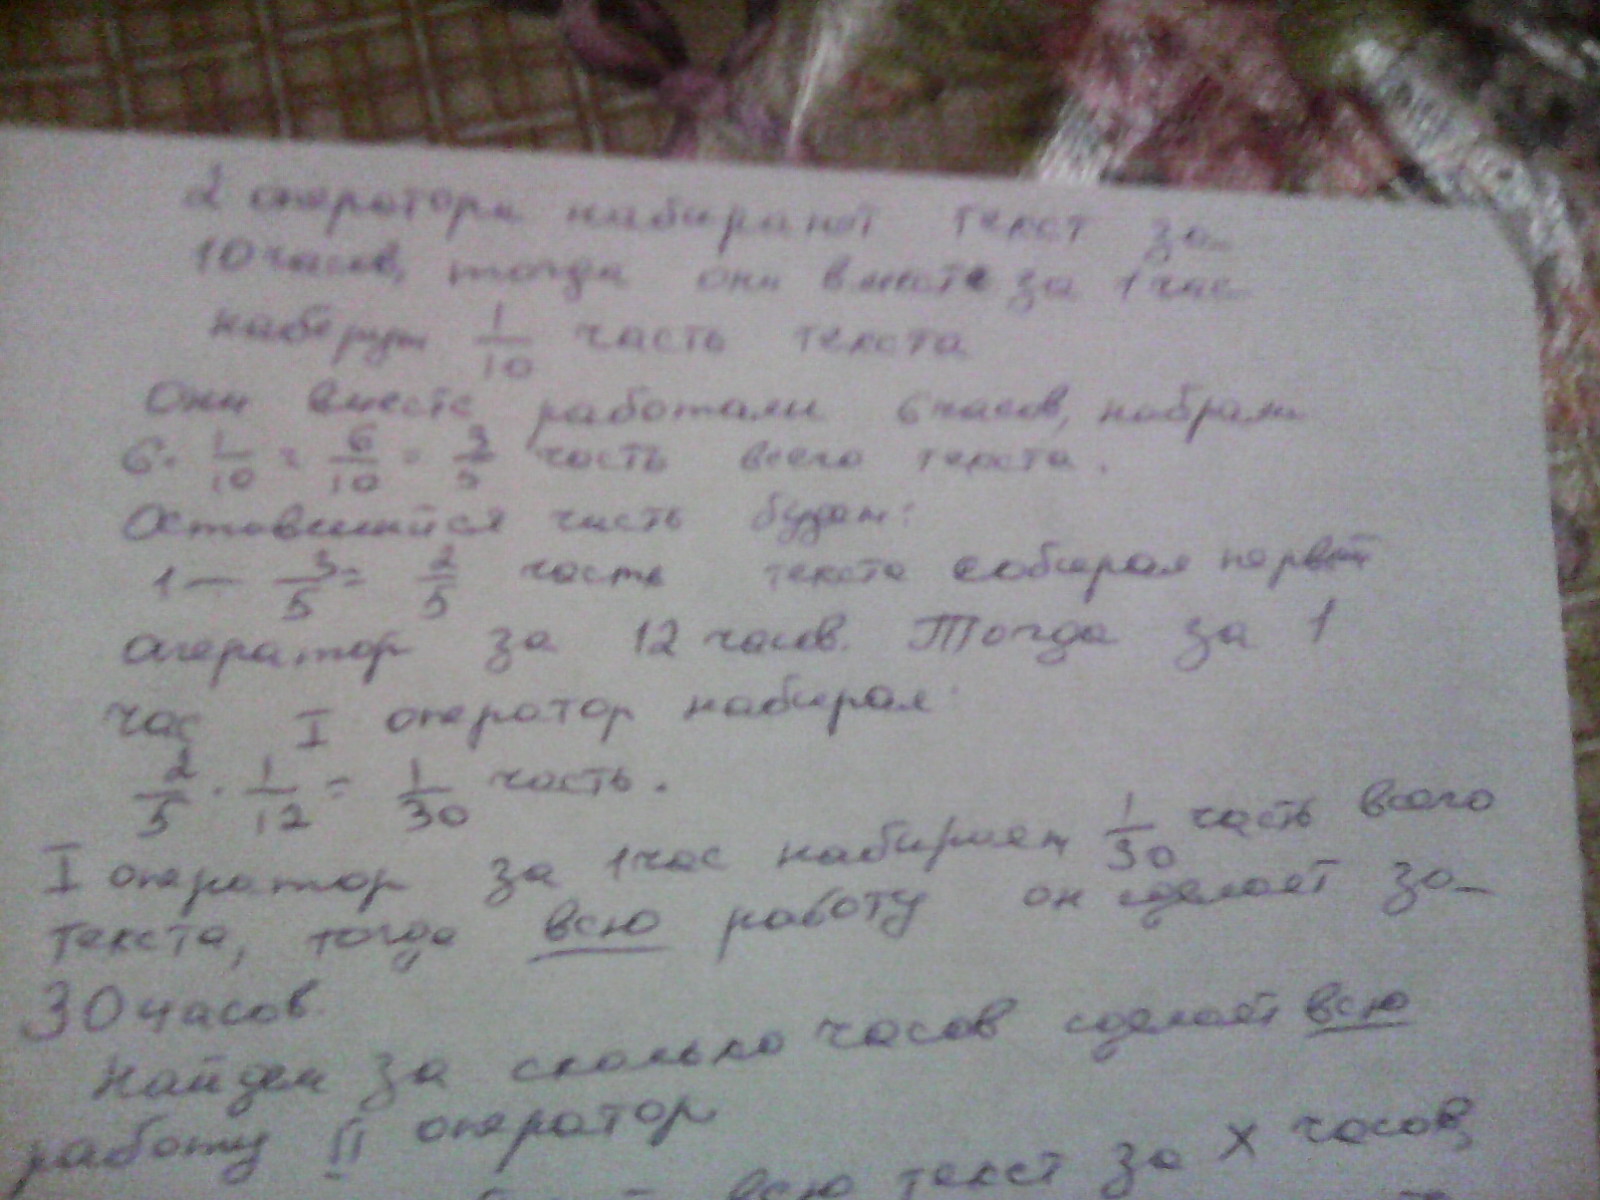 2 оператора набирают текст за
10 часов, тогда они вместе за 1 час
наберут 1/10 часть текста
Они вместе работали 6 часов, набрали
6 · 1/10 = 6/10 = 3/5 часть всего текста.
Оставшийся часть будет:
1 — 3/5 = 2/5 часть текста собирал первый
оператор за 12 часов. Тогда за 1
час I оператор набирал:
2/5 · 1/12 = 1/30 часть.
I оператор за 1 час набирает 1/30 часть всего
текста, тогда всю работу он сделает за
30 часов.
Найдем за сколько часов сделает всю
работу II оператор
всю текст за x часов,